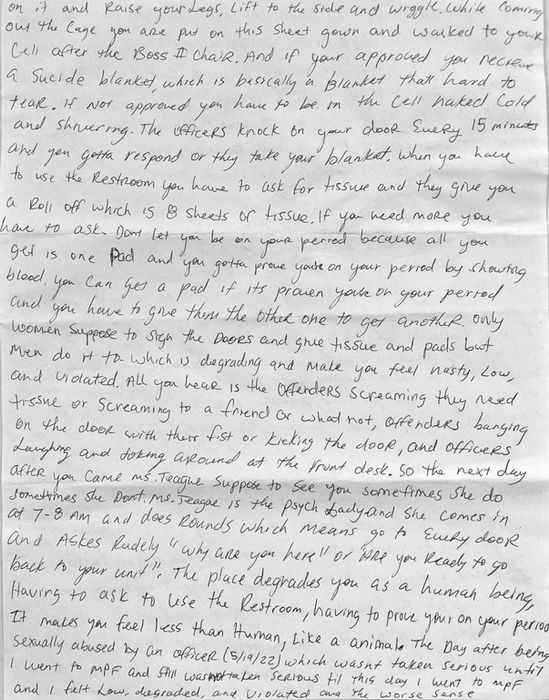 on it and Raise your Legs, Lift to the side and wiggle. While Coming
out the Cage you are put on this sheet gown and walked to your
Cell after the Boss II Chair. And if your approved you recieve
a Sucide blanket, which is besically a Blanket that hard to
tear. If Not approved you have to be in the Cell naked Cold
and shivering. The officers knock on your door Every 15 minuts
and you gotta respond or they take your blanket. When you have
to use the Restroom you have to ask for tissue and they give you
a Roll off which is 8 sheets of tissue. If you need more you
have to ask. Dont let you be on your period because all you
get is one Pad and you gotta prove youre on your period by showing
blood. you can get a pad if its proven youre on your period
and you have to give them the other one to get another. only
women suppose to sign the Doors and give tissue and pads but
Men do it to which is degrading and make you feel nasty, Low,
and violated. All you hear is the offenders screaming they need
tissue or Screaming to a friend or what not, offenders banging
on the door with their fist or kicking the door, and officers
Laughing and Joking around at the front desk. So the next day
after you came ms. Teague Suppose to See you sometimes she do
sometimes she Dont. ms. Teague is the psych Lady and she comes in
at 7-8 AM and does Rounds which means go to Every door
and Askes Rudely "why are you here" or "Are you Ready to go
back to your unit". The place degrades you as a human being,
Having to ask to Use the Restroom, having to prove your on your period
It makes you feel less than Human, Like a animal. The Day after being
sexually abused by an officer (5/19/22) which wasnt taken serious until
I went to MPF and still wasnot taken Serious til this day I went to MPF
and I felt Low, degraded, and violated and the worse sense